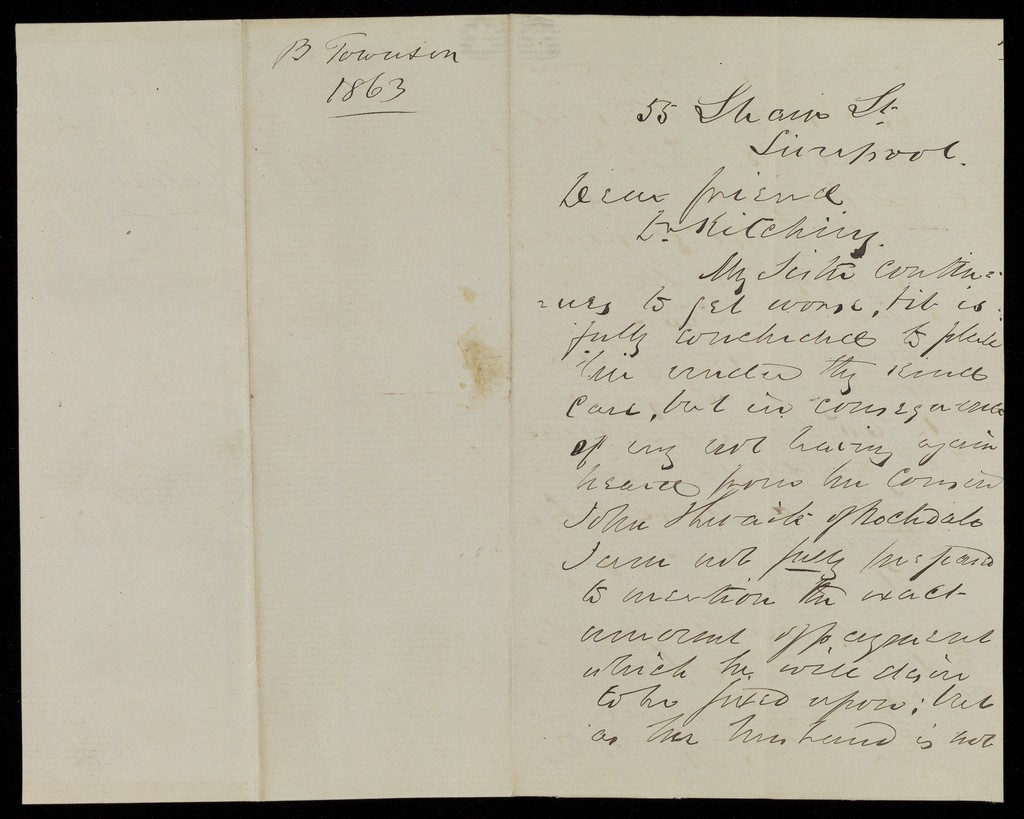 B Townson
1863
55 Shaw St
Liverpool.
Dear friend
Dr Kitching.
My Sister contin=
=ues to get worse, & it is
fully concluded to place
her under thy kind
care, but in consequence
of my not having again
heard from her Cousin
John Thwaite of Rochdale
I am not fully prepared
to mention the exact
amount of payment
which he will desire
to be fixed upon; but
as her husband is not